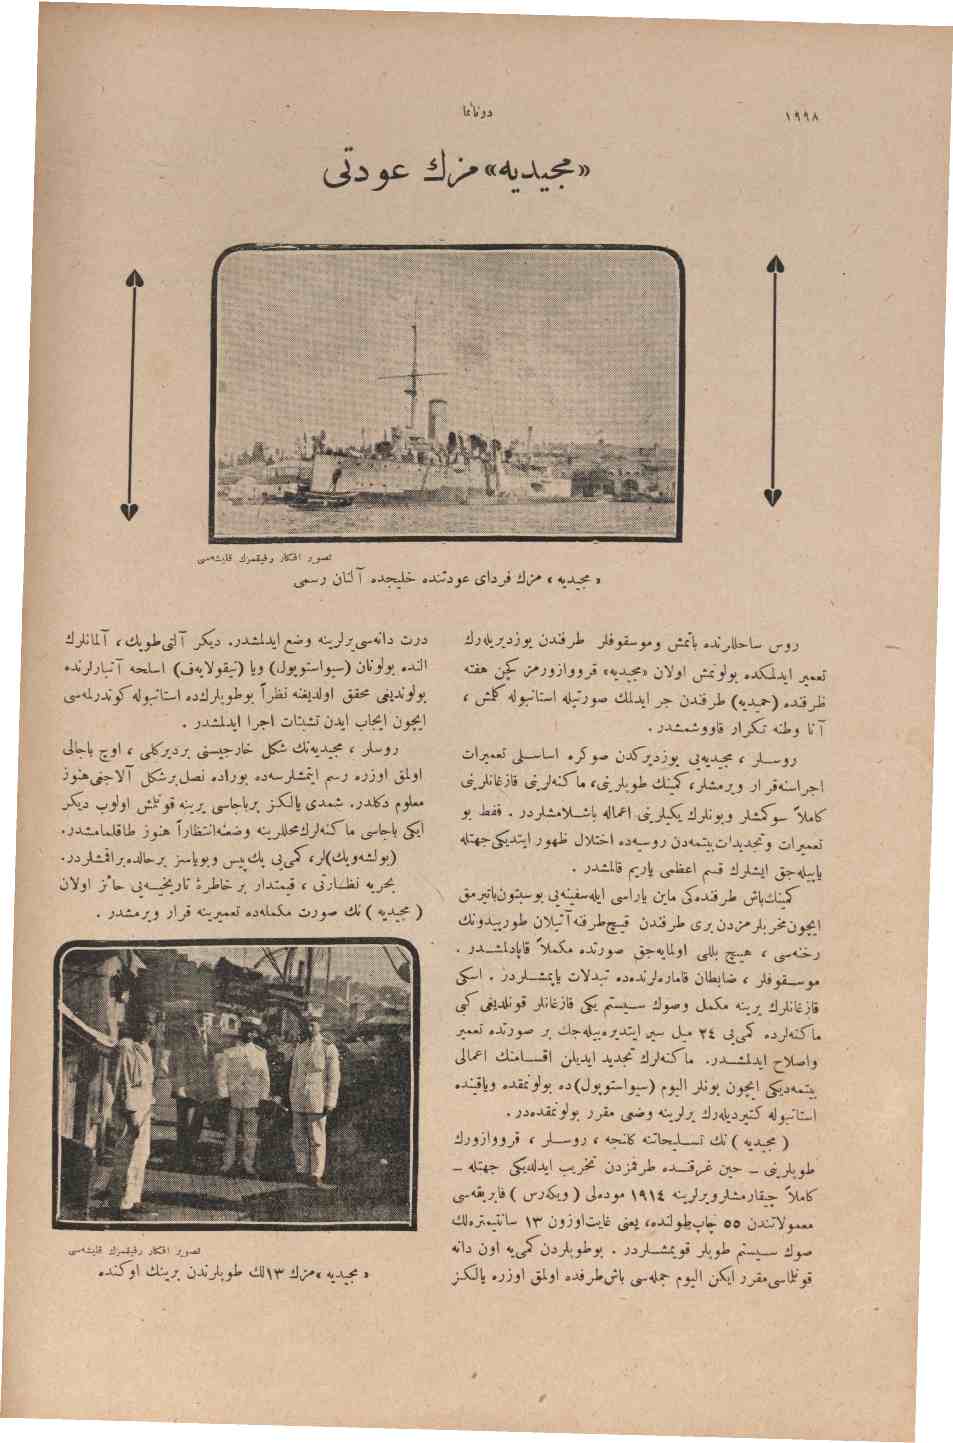 ١٩٩٨
دونانما
«مجیدیه» مزك عودتی
تصویر افكار رفیقمزك قلیشه‌سی
« مجیدیه » مزك فردای عودتنده خلیجده آلنان رسمی
روس ساحللرنده باتمش وموسقوفلر طرفندن یوزدیریله‌رك
تعمیر ایدلمكده بولونمش اولان «مجیدیه» قرووازورمز كچن هفته
ظرفنده (حمیدیه) طرفندن جر ایدلمك صورتیله استانبوله كلمش ،
آنا وطنه تكرار قاووشمشدر .
روسلر ، مجیدیه‌یی یوزدیركدن صوكره اساسلی تعمیرات
اجراسنه‌قرار ویرمشلر، كمینك طوپلرینی، ماكنه‌لرینی قازغانلرینی
كاملاً سوكمشلر وبونلرك یكیلرینی اعماله باشلامشلردر . فقط بو
تعمیرات و تجدیدات‌بیتمه‌دن روسیه‌ده اختلال ظهور ایتدیكی‌جهتله
یاپیله‌جق ایشلرك قسم اعظمی یاریم قالمشدر .
كمینك‌باش طرفنده‌كی ماین یاراسی ایله‌سفینه‌یی بوسبتون‌باتیرمق
ایچون‌مخربلرمزدن بری طرفندن قیچ‌طرفنه‌آتیلان طورپیدونك
رخنه‌سی ، هیچ بللی اولمایه‌جق صورتده مكملاً قاپادلمشدر .
موسقوفلر ، ضابطان قامارەلرنده‌ده تبدلات یاپمشلردر . اسكی
قازغانلرك یرینه مكمل وصوك سیستم یكی قازغانلر قونلدیغی كبی
ماكنه‌لرده كمی‌یی ٢٤ میل سیر ایتدیره‌بیله‌جك بر صورتده تعمیر
واصلاح ایدلمشدر. ماكنه‌لرك تجدید ایدیلن اقسامنك اعمالی
بیتمه‌دیكی ایچون بونلر الیوم (سیواستوپول)ده بولونمقده ویاقینده
استانبوله كتیردیله‌رك یرلرینه وضعی مقرر بولونمقده‌در.
( مجیدیه ) نك تسلیحاتنه كلنجه ، روسلر ، قرووازورك
طوپلرینی – حین غرقنده طرفمزدن تخریب ایدلدیكی جهتله –
كاملاً چیقارمشلرویرلرینه ١٩١٤ موده‌لی ( ویكه‌رس ) فابریقه‌سی
معمولاتندن ٥٥ چاپ‌طولنده، یعنی غایت‌اوزون ١٣ سانتیمتره‌لك
صوك سیستم طوپلر قویمشلردر . بوطوپلردن كمی‌یه اون دانه
قونلماسی‌مقرر ایكن الیوم جمله‌سی باش‌طرفده اولمق اوزره یالكز
درت دانه‌سی‌یرلرینه وضع ایدلمشدر. دیگر آلتی‌طوپك، آلمانلرك
النده بولونان (سیواستوپول) ویا (نیقولایه‌ف) اسلحه آنبارلرنده
بولوندیغی محقق اولدیغنه نظراً بوطوپلرك‌ده استانبوله كوندرلمه‌سی
ایچون ایجاب ایدن تشبثات اجرا ایدلمشدر .
روسلر ، مجیدیه‌نك شكل خارجیسنی بردیركلی ، اوچ باجالی
اولمق اوزره رسم ایتمشلرسه‌ده بوراده نصل‌برشكل آلاجغی‌هنوز
معلوم دكلدر. شمدی یالكز برباجاسی یرینه قونلمش اولوب دیگر
ایكی باجاسی ماكنه‌لرك‌محللرینه وضعنه‌انتظاراً هنوز طاقلمامشدر.
(بولشه‌ویك)لر، كمی‌یی پك‌پیس وبویاسز برحالده‌براقمشلردر.
بحریه نظارتی ، قیمتدار بر خاطرۀ تاریخیه‌یی حائز اولان
( مجیدیه ) نك صورت مكمله‌ده تعمیرینه قرار ویرمشدر .
تصویر افكار رفیقمزك قلیشه‌سی
« مجیدیه »مزك ١٣لك طوپلرندن برینك اوكنده